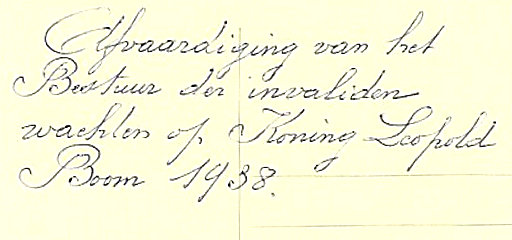 Afvaardiging van het
Bestuur der invaliden
wachten op Koning Leopold
Boom 1938.